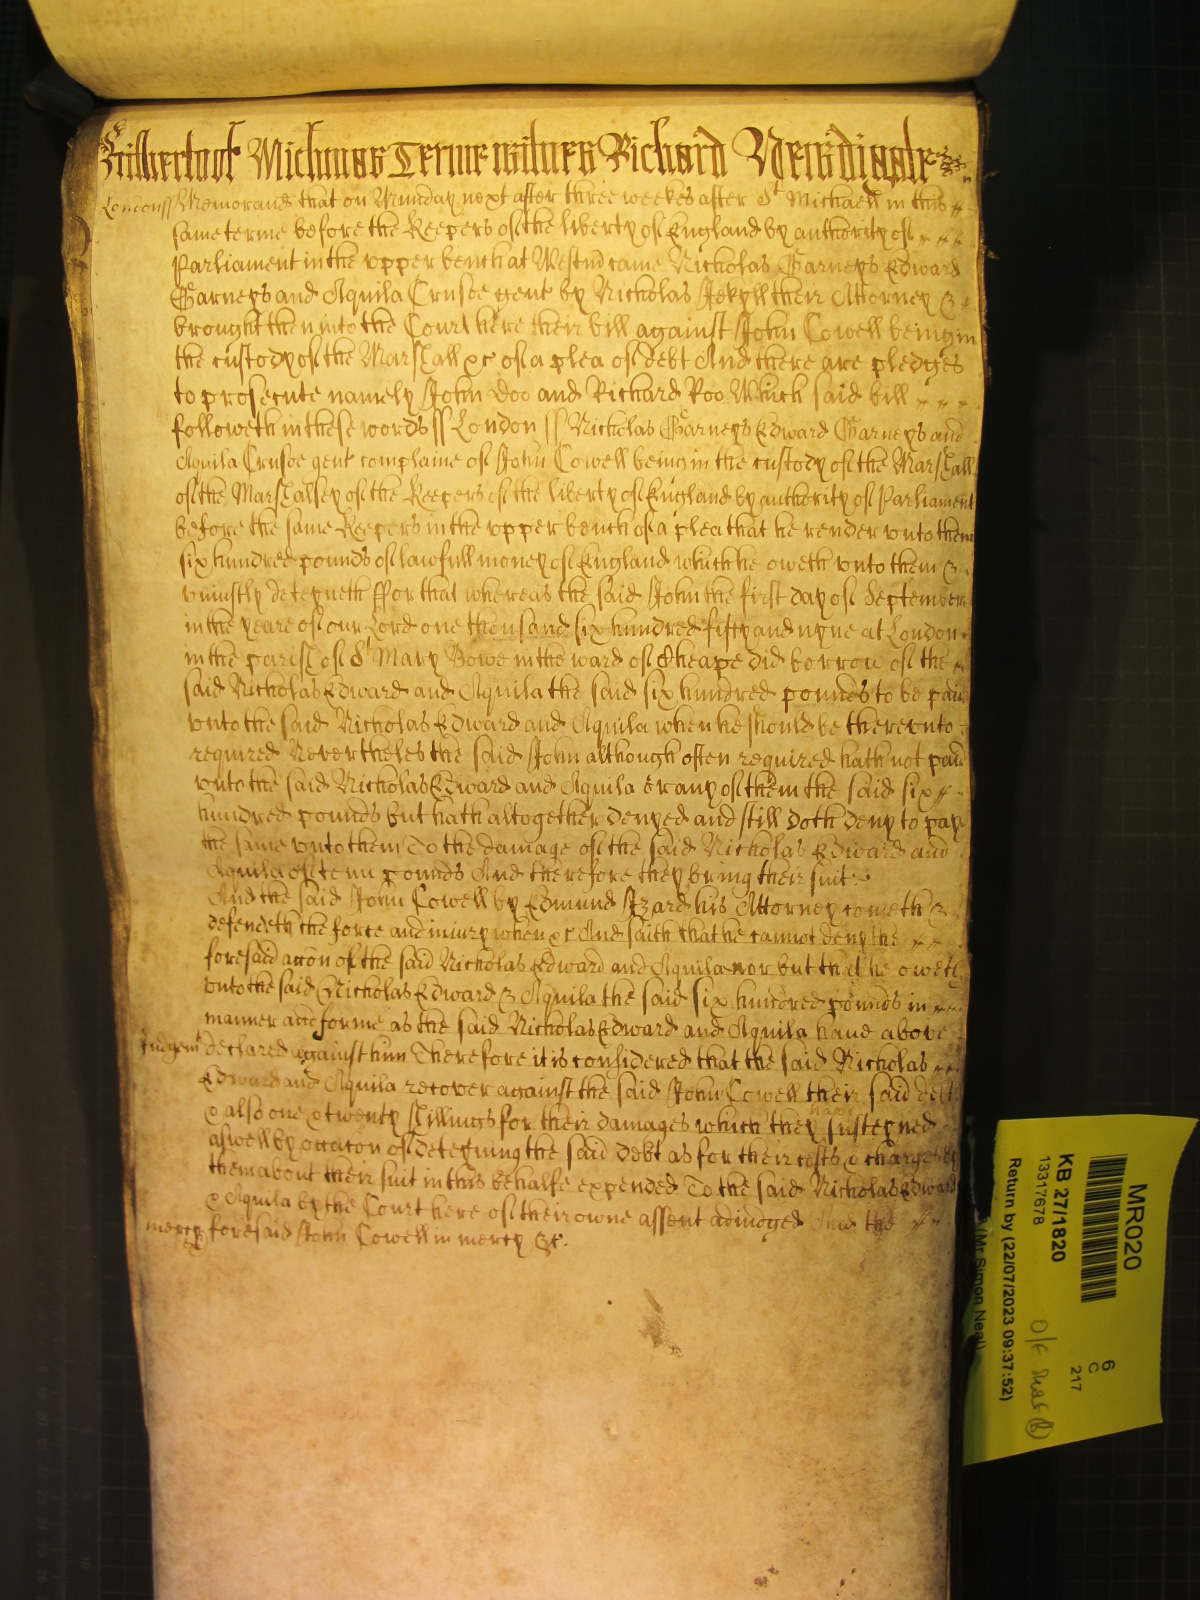 Michmas Terme witnes Richard Newdigate
London ss Memorand that on Munday next after three weekes after St Michaell in this
same terme before the Keepers of the liberty of England by authority of
Parliament in the vpper bench at Westm came Nicholas Garneys Edward
Garneys and Aquila Crusoe gent by Nicholas Jekyll their Attorney &
brought then into the Court here their bill against John Cowell being in
the custody of the Marshall &c of a plea of debt And there are pledges
to prosecute namely John Doo and Richard Roo Which said bill
followeth in these words ss London ss Nicholas Garneys Edward Garneys and
Aquila Crusoe gent complaine of John Cowell being in the custody of the Marshall
of the Marshalsey of the Keepers of the liberty of England by authority of Parliament
before the same Keepers in the vpper bench of a plea that he render vnto them
six hundred pounds of lawfull money of England which he oweth vnto them &
vniustly deteyneth ffor that whereas the said John the first day of September
in the yeare of our Lord one thousand six hundred fifty and nyne at London
in the parish of St Mary Bowe in the ward of Cheape did borrow of the
said Nicholas Edward and Aquila the said six hundred pounds to be paid
vnto the said Nicholas Edward and Aquila when he should be therevnto
required Neverthelesse the said John although often required hath not paid
vnto the said Nicholas Edward and Aquila or any of them the said six
hundred pounds but hath altogether denyed and still doth deny to pay
the same vnto them To the damage of the said Nicholas Edward and
Aquila of tenn pounds And therefore they bring their suit
And the said John Cowell by Edmund Izard his Attorney cometh &
defendeth the force and iniury when &c And saith that he cannot deny the
foresaid accon of the said Nicholas Edward and Aquila nor but that he oweth
vnto the said Nicholas Edward & Aquila the said six hundred pounds in
manner and forme as the said Nicholas Edward and Aquila haue above
Judgemt declared against him Therefore it is considered that the said Nicholas
Edward and Aquila recover against the said John Cowell their said debt
& also one & twenty shillings for their damages which they have susteyned
aswell by occacon of deteyning the said debt as for their costs & charges by
them about their suit in this behalfe expended To the said Nicholas Edward
& Aquila by the Court here of their owne assent adiudged And the
mercy foresaid John Cowell in mercy &c.
MR020
6
C
217
KB 27/1820
13317678
Return by (22/07/2023 09:37:52)
(Mr Simon Neal)